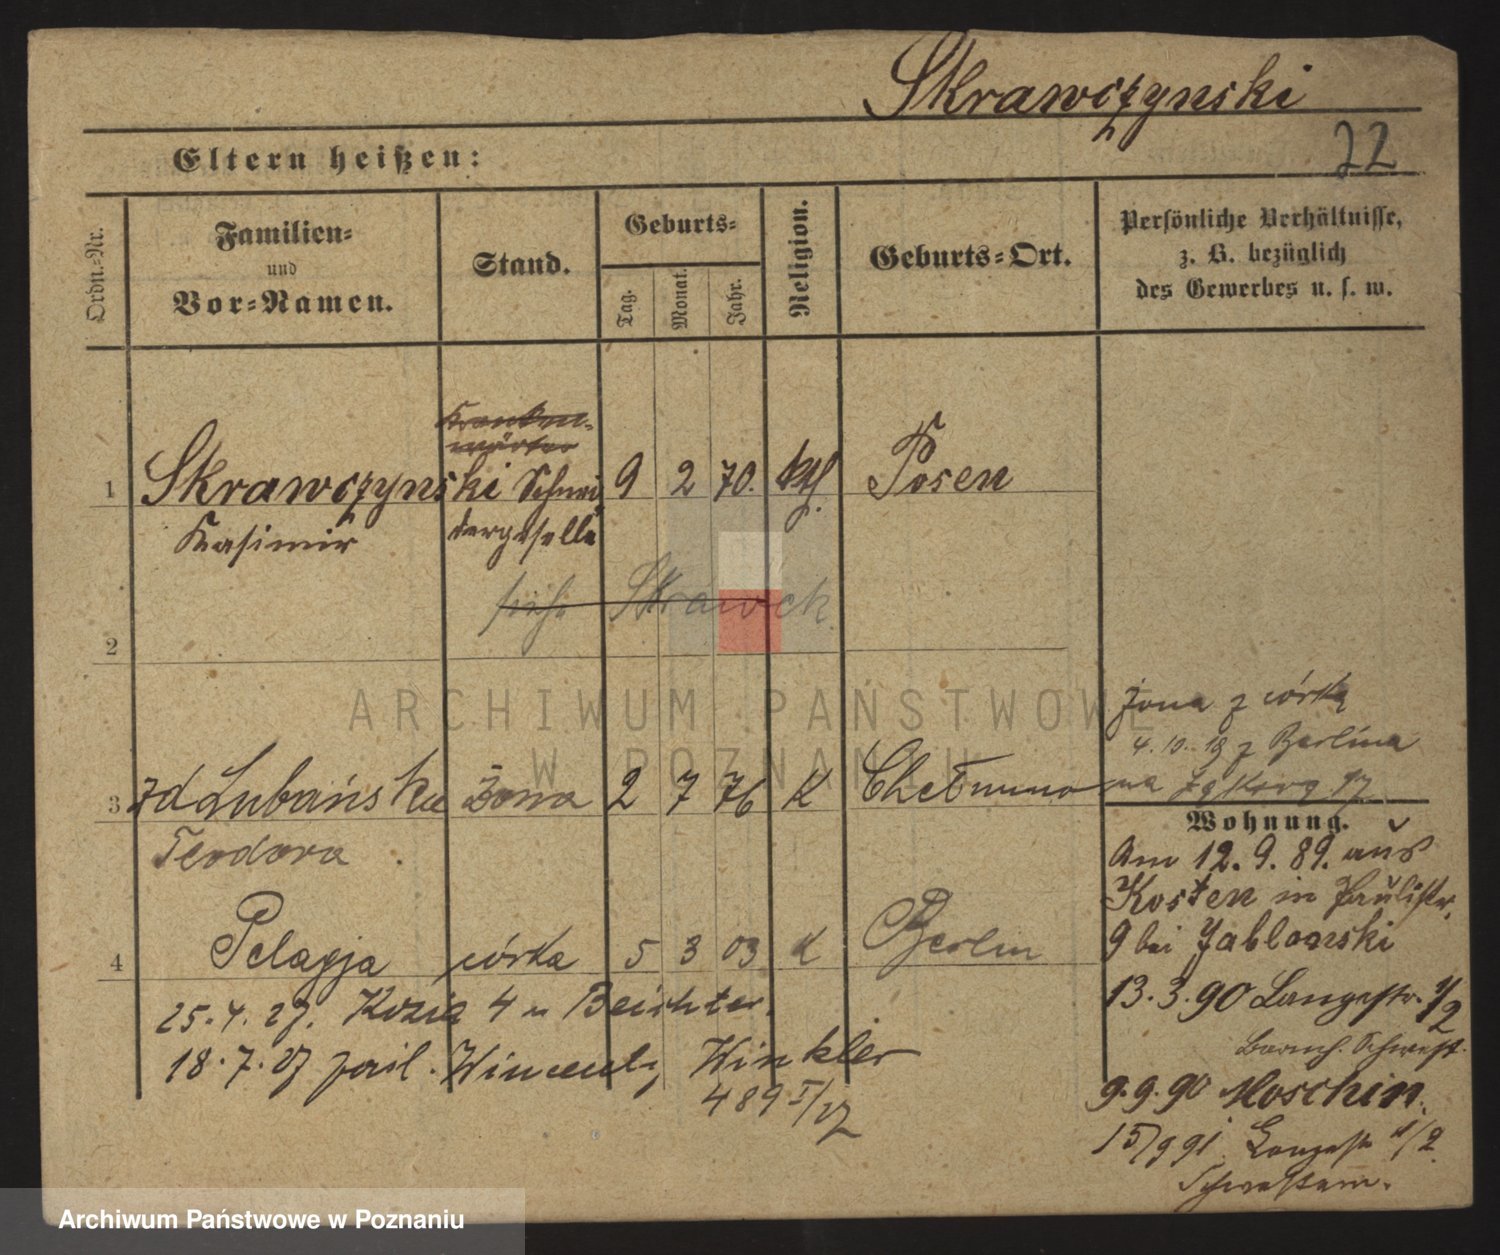 Skrawczynski
22
Eltern heißen:
Ordn.-Nr.
Familien-
und
Vor-Namen.
Stand.
Geburts-
Tag.
Monat.
Jahr.
Religion.
Geburts-Ort.
Persönliche Verhältnisse,
z. B. bezüglich
des Gewerbes u. s. w.
Kranken-
wärter
1 Skrawczynski Schnei 9 2 70. kth. Posen
Kasimir dergeselle
Skrawck
2
żona z córką
4. 10. 19 z Berlina
3 zd Lubańska żona 2 7 76 K Chełmno na
Teodora
Wohnung.
Am 12. 9. 89. aus
Kosten in Paulistr.
9 bei Jablonski
4 Pelagja córka 5 3 03 K Berlin
13. 3. 90 Langestr. 1/2
Barmh. Schwest.
25. 4. 27. Kozia 4 u Beichter.
18. 7. 27 Wincenty Winkler
489 I/27
9. 9. 90 Moschin.
15/9 91. Langestr 1/2
Schwestern.
ARCHIWUM PAŃSTWOWE
W POZNANIU
Archiwum Państwowe w Poznaniu